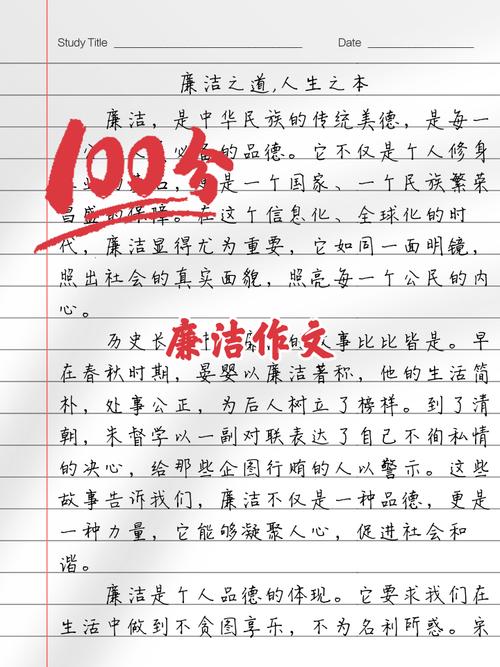 Study Title
Date
廉洁之道,人生之本
廉洁，是中华民族的传统美德，是每一
备的品德。它不仅是个人修身
是一个国家、一个民族繁荣
昌盛的保障。在这个信息化、全球化的时
代，廉洁显得尤为重要，它如同一面明镜，
照出社会的真实面貌，照亮每一个公民的内
心。
100分
历史长 事比比皆是。早
廉洁作文
在春秋时期，晏婴以廉洁著称，他的生活简
朴，处事公正，为后人树立了榜样。到了清
朝，朱督学以一副对联表达了自己不徇私情
的决心，给那些企图行贿的人以警示。这些
故事告诉我们，廉洁不仅是一种品德，更是
一种力量，它能够凝聚人心，促进社会和
谐。
廉洁是个人品德的体现。它要求我们在
生活中做到不贪图享乐，不为名利所惑。宋